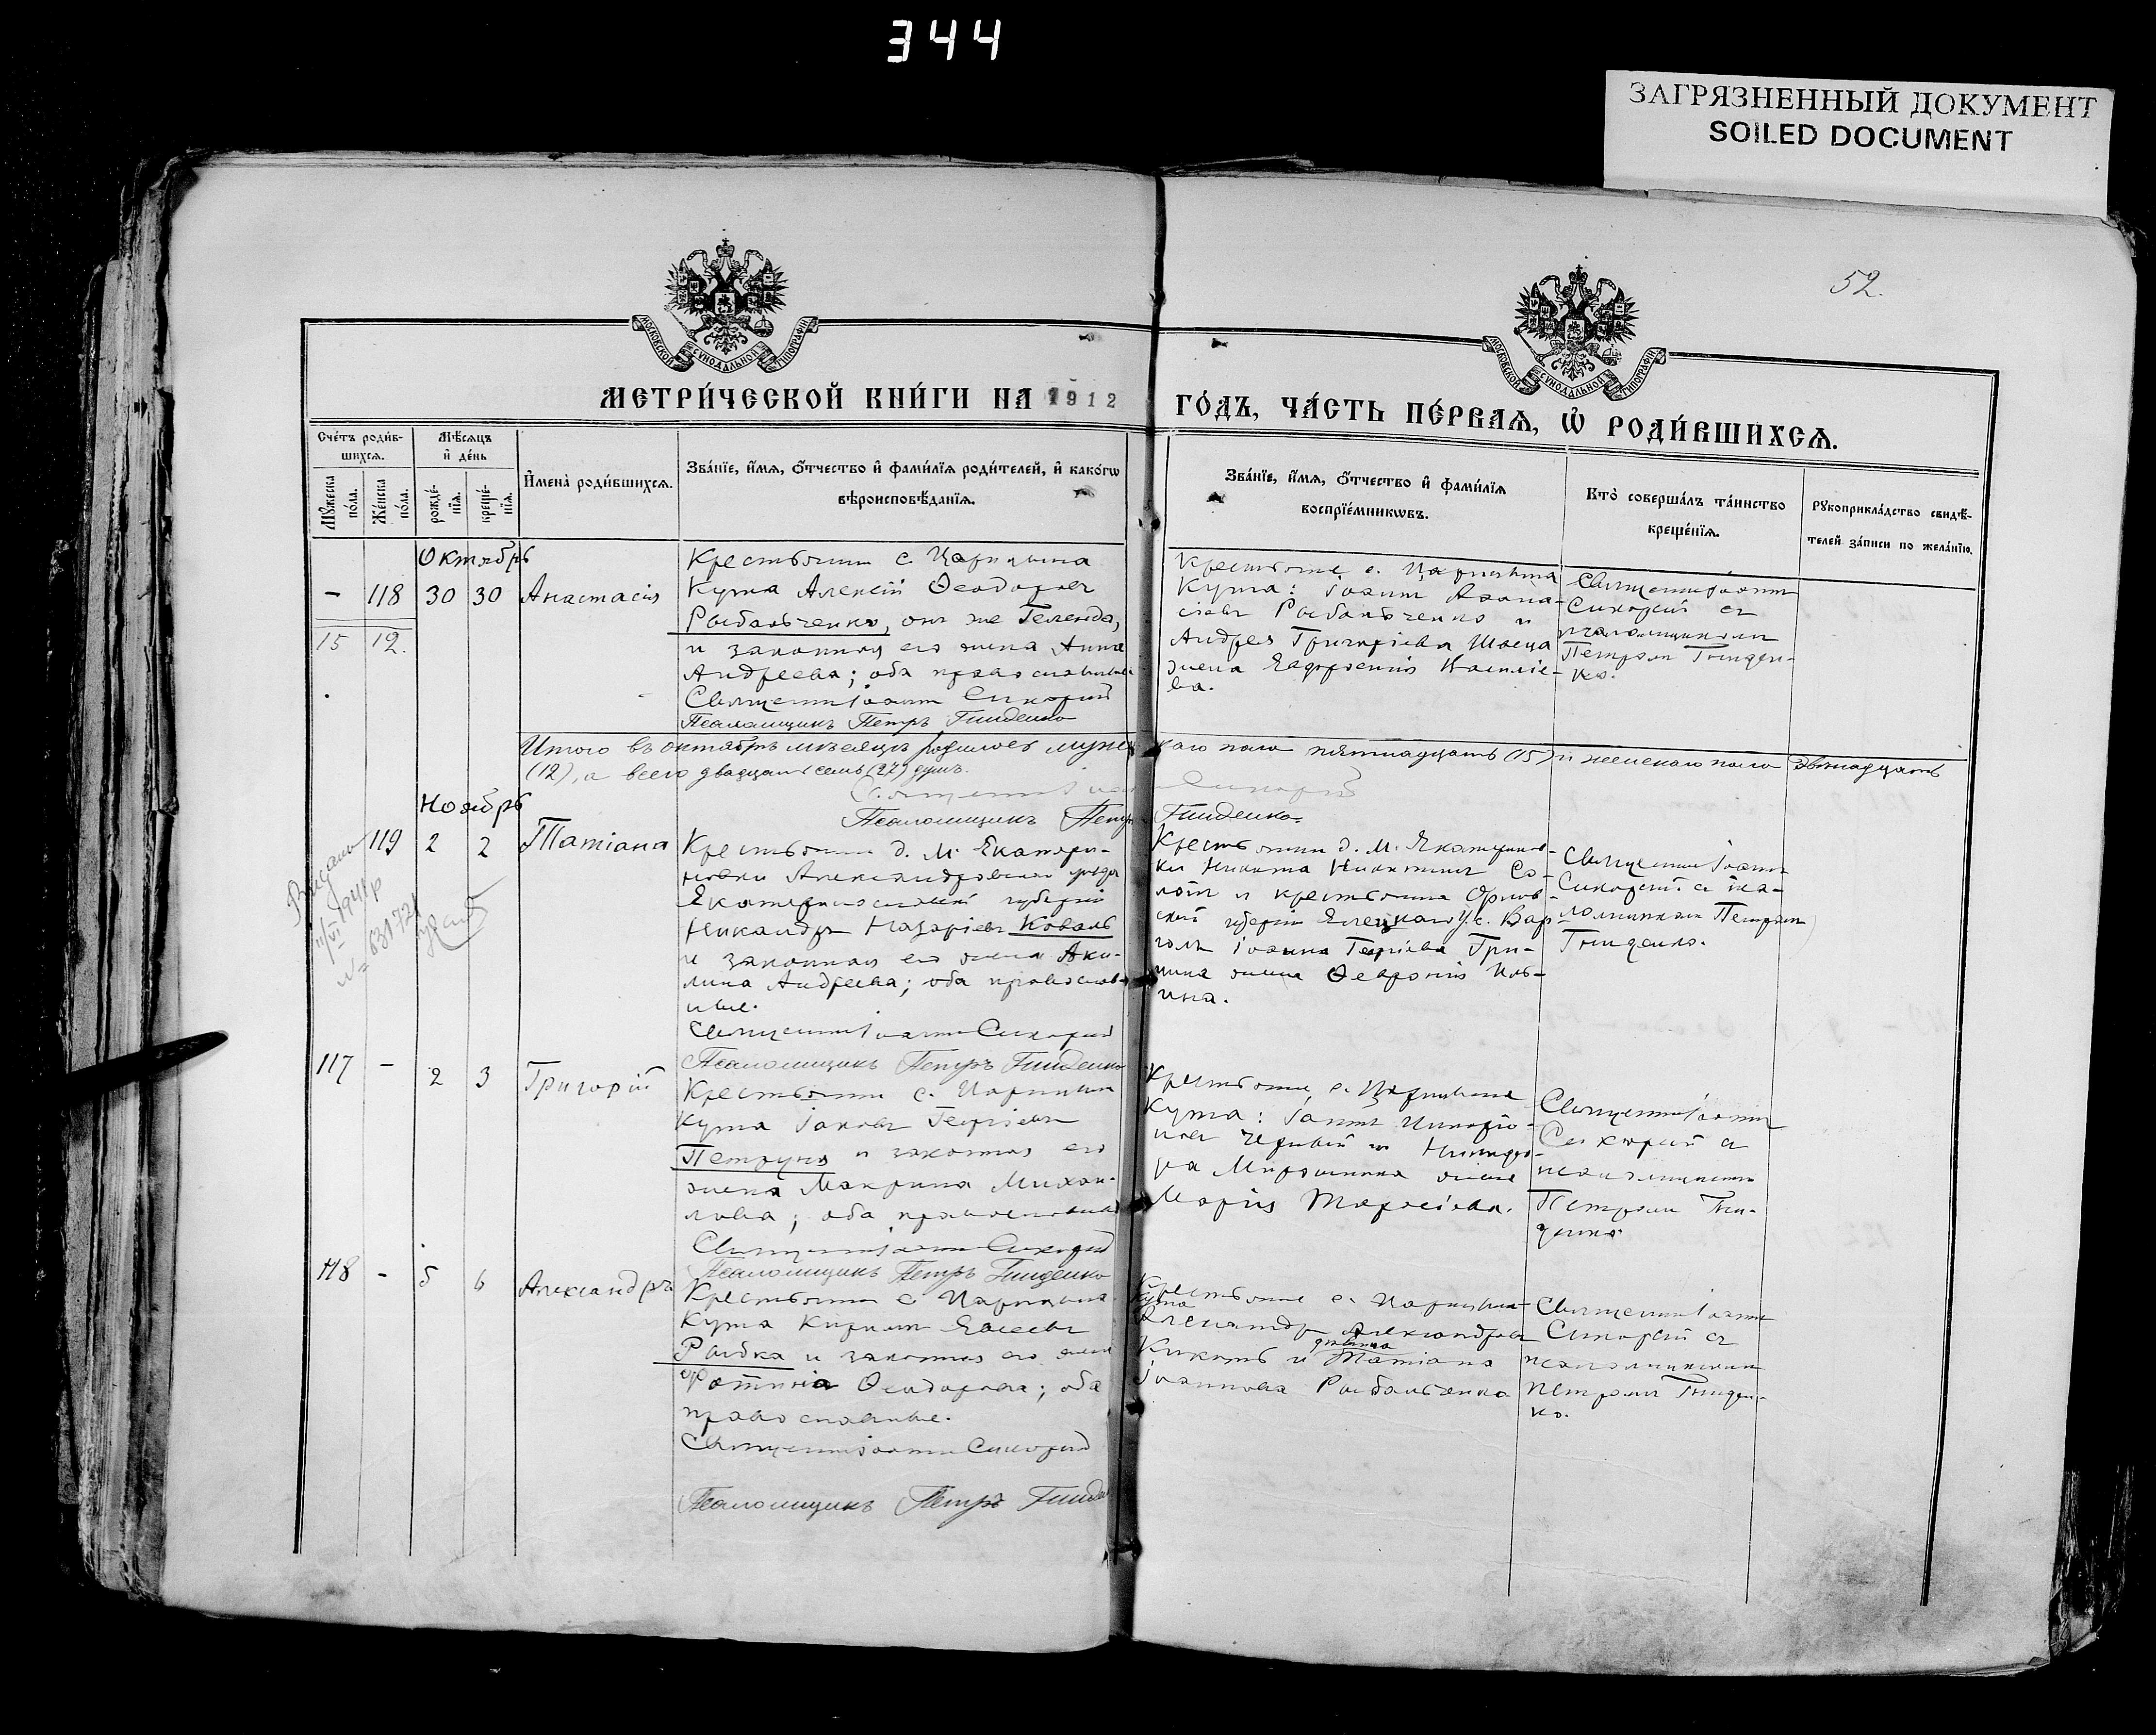 344
ЗАГРЯЗНЕННЫЙ ДОКУМЕНТ
SOILED DOCUMENT
52.
МОСКОВСКОЙ СѴНОДАЛЬНОЙ ТИПОГРАФІИ
МОСКОВСКОЙ СѴНОДАЛЬНОЙ ТИПОГРАФІИ
МЕТРИ́ЧЕСКОЙ КНИ́ГИ НА 1912 ГО́ДЪ, ЧА́СТЬ ПЕ́РВАѦ, Ѡ҆ РОДИ́ВШИХСѦ.
Сче́тъ роди́в-
шихсѧ.
Мѣ́сѧцъ
и҆ де́нь
Мꙋ́жеска
по́ла.
Же́нска
по́ла.
рожде́-
нїѧ.
креще́-
нїѧ.
И҆мена̀ роди́вшихсѧ.
Зва́нїе, и҆́мѧ, ѻ҆́тчество и҆ фами́лїѧ роди́телей, и҆ како́гѡ
вѣроисповѣ́данїѧ.
Зва́нїе, и҆́мѧ, ѻ҆́тчество и҆ фами́лїѧ
воспрїе́мникѡвъ.
Кто̀ соверша́лъ та́инство
креще́нїѧ.
Рꙋкоприкла́дство свидѣ́-
телей за́писи по жела́нїю.
Октябрь
- 118 30 30 Анастасія
15 12.
Крестьянинъ с. Царицына
Кута Алексій Ѳеодоровъ
Рыбальченко, онъ же Геленда,
и законная его жена Анна
Андреева; оба православные
Священникъ Іоаннъ Сикорскій
Псаломщикъ Петръ Гниденко
Крестьяне с. Царицына
Кута: Іоаннъ Аѳана-
сіевъ Рыбальченко и
Андрея Григоріева Швеца
жена Евфросинія Василіе-
ва.
Священникъ Іоаннъ
Сикорскій съ
псаломщикомъ
Петромъ Гниден-
ко.
Итого въ октябрѣ мѣсяцѣ родилось мужескаго пола пятнадцать (15) и женскаго пола двѣнадцать
(12), а всего двадцать семь (27) душъ.
Священникъ Іоаннъ Сикорскій
Псаломщикъ Петръ Гниденко.
Ноябрь
119 2 2 Татіана
Видано
11/VI 1941 р
№ 631724
Крестьянинъ д. М. Екатери-
новки Александровскаго уѣзда
Екатеринославской губерніи
Никандръ Назаріевъ Коваль
и законная его жена Аки-
лина Андреева; оба православ-
ные.
Священникъ Іоаннъ Сикорскій
Псаломщикъ Петръ Гниденко
Крестьянинъ д. М. Екатеринов-
ки Никита Никитинъ Со-
лотъ и крестьянина Орлов-
ской губерніи Елецкаго у. с. Вар
голъ Іоанна Георгіева Гри-
нина жена Ѳевронія Иль-
ина.
Священникъ Іоаннъ
Сикорскій съ пса-
ломщикомъ Петромъ
Гниденко.
117 - 2 3 Григорій
Крестьянинъ с. Царицына
Кута Іаковъ Георгіевъ
Петруня и законная его
жена Макрина Михаи-
лова; оба православные
Священникъ Іоаннъ Сикорскій
Псаломщикъ Петръ Гниденко
Крестьяне с. Царицына
Кута: Іоаннъ Никоно-
новъ Черный и Никифо-
ра Мирошника жена
Марія Тарасіева.
Священникъ Іоаннъ
Сикорскій съ
псаломщикомъ
Петромъ Гни-
денко.
118 - 5 6 Александръ
Крестьянинъ с. Царицына
Кута Кириллъ Евсеевъ
Рыбка и законная его жена
Фотинія Ѳеодорова; оба
православные.
Священникъ Іоаннъ Сикорскій
Псаломщикъ Петръ Гниден
Крестьяне с. Царицына-
Кута
Александръ Александровъ
Кикоть и дѣвица Татіана
Іоаннова Рыбальченко
Священникъ Іоаннъ
Сикорскій съ
псаломщикомъ
Петромъ Гниден-
ко.